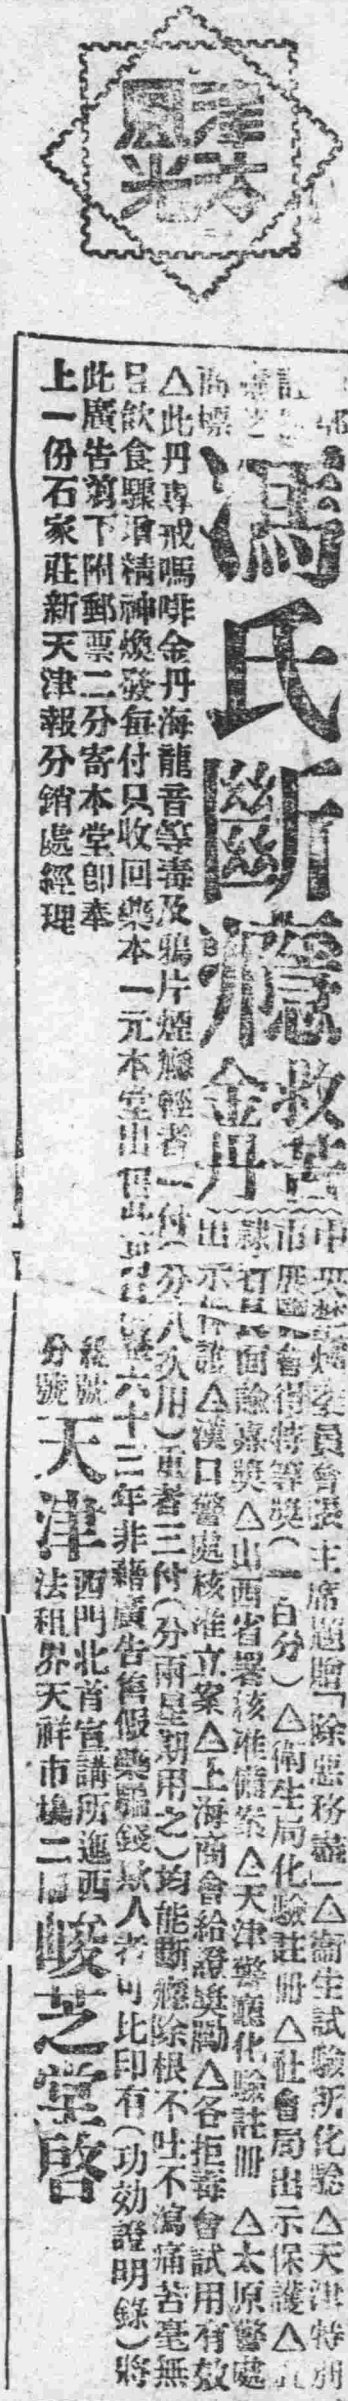 津沽
風光
馮氏斷癮救苦金丹
中央禁煙委員會張主席題贈「除惡務盡」△衛生試驗所化驗△天津特別
市展覽會得特等獎(一百分)△衛生局化驗註冊△社會局出示保護△直
隸省長面諭嘉獎△山西省署核准備案△天津警廳化驗註冊△太原警處
出示保護△漢口警處核准立案△上海商會給證獎勵△各拒毒會試用有效
商標
△此丹專戒嗎啡金丹海龍音等毒及鴉片煙癮輕者一付(分八次用)重者三付(分兩星期用之)均能斷癮除根不吐不瀉痛苦毫無
且飲食驟增精神煥發每付只收回藥本一元本堂出六十三年非藉廣告售假藥騙錢欺人者可比印有(功効證明錄)將
此廣告剪下附郵票二分寄本堂即奉
上一份石家莊新天津報分銷處經理
總號
分號
天津
西門北首宣講所進西
法租界天祥市場二
峻芝堂啓